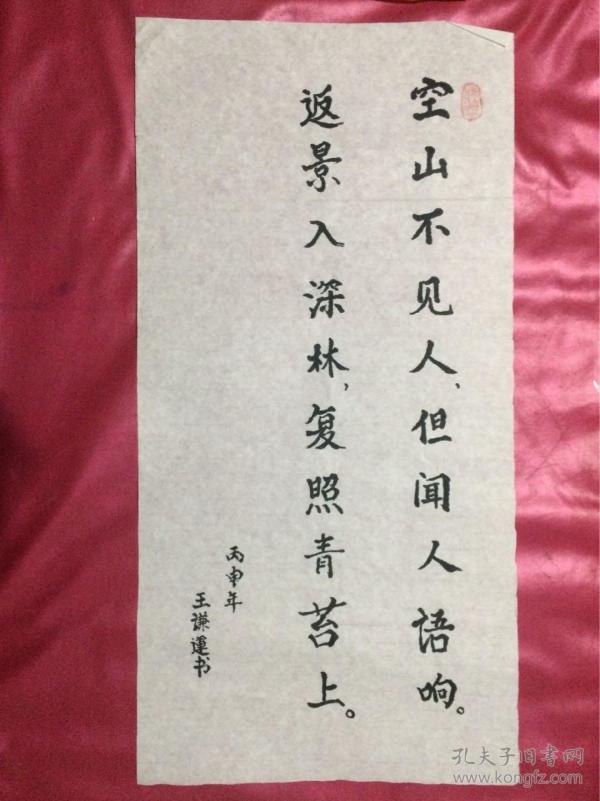 空山不见人、但闻人语响。
返景入深林，复照青苔上。
丙申年
王谦運书
孔夫子旧書网
www.kongfz.com